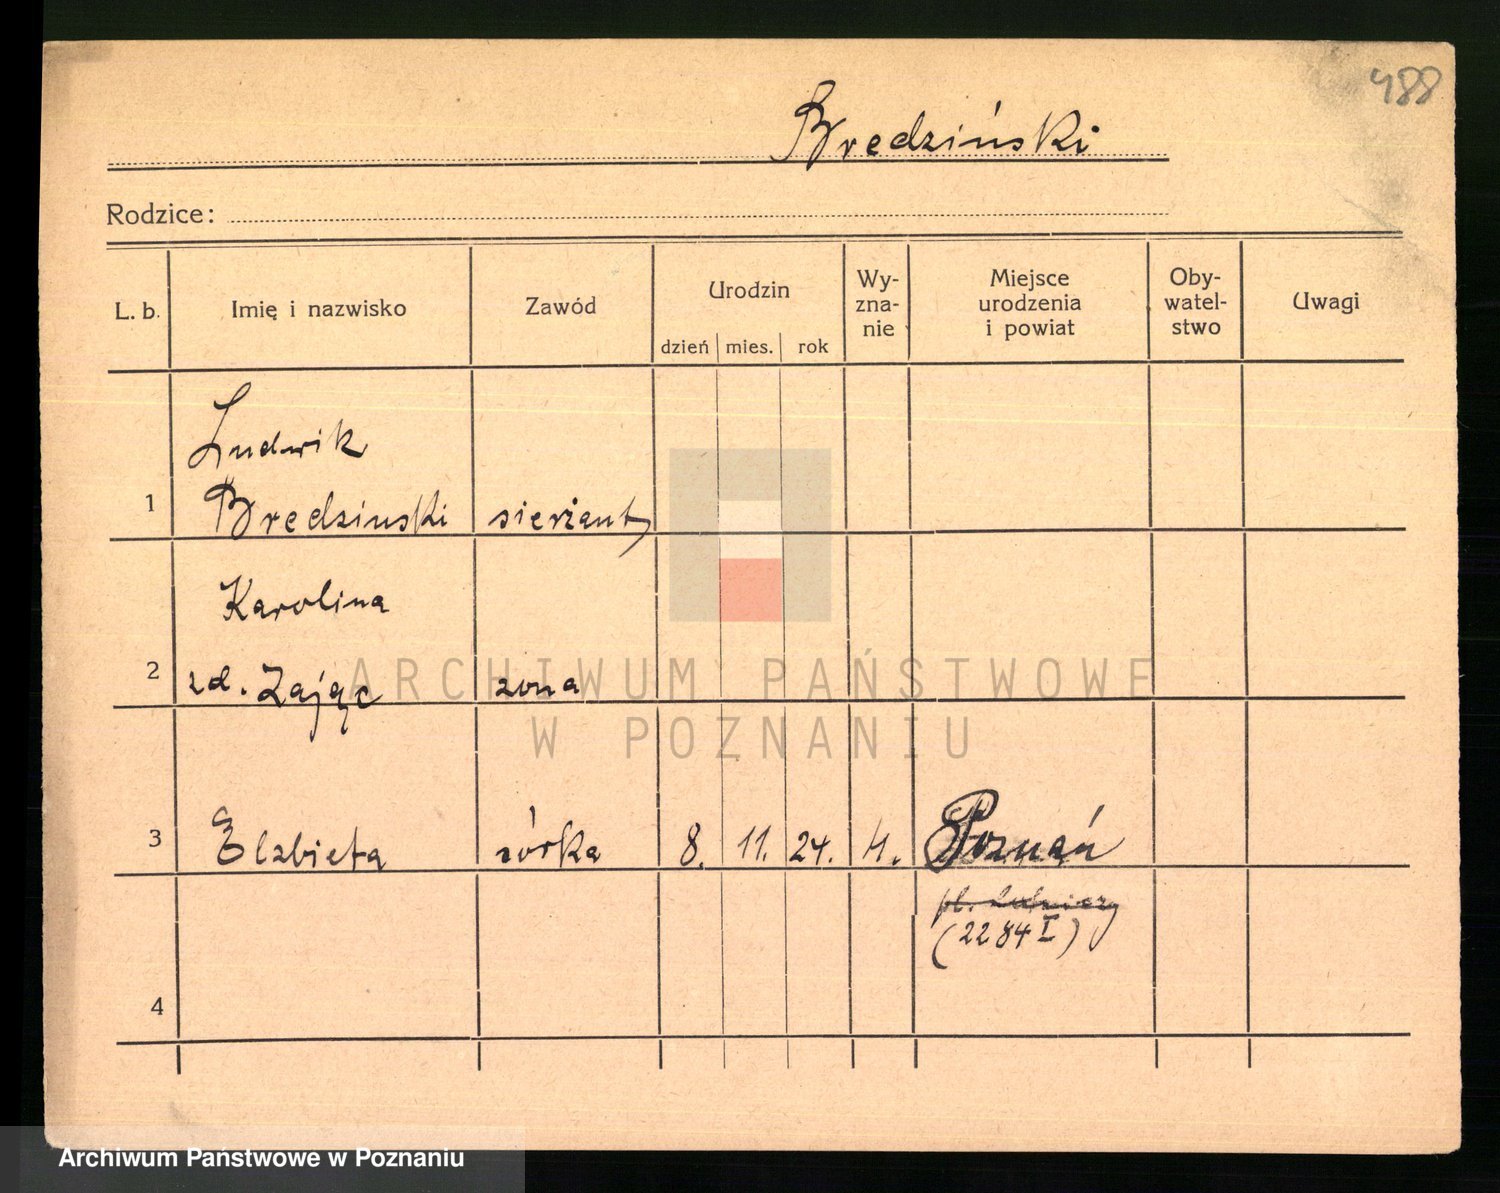 488
Bredziński
Rodzice:
L. b. Imię i nazwisko Zawód Urodzin Wy-zna-nie Miejsce urodzenia i powiat Oby-watel-stwo Uwagi
dzień mies. rok
Ludwik
1 Bredzinski sierżant
Karolina
2 zd. Zając zona
3 Elzbieta córka 8. 11. 24. Poznań
pl.
(2284 I)
4
ARCHIWUM PAŃSTWOWE
W POZNANIU
Archiwum Państwowe w Poznaniu